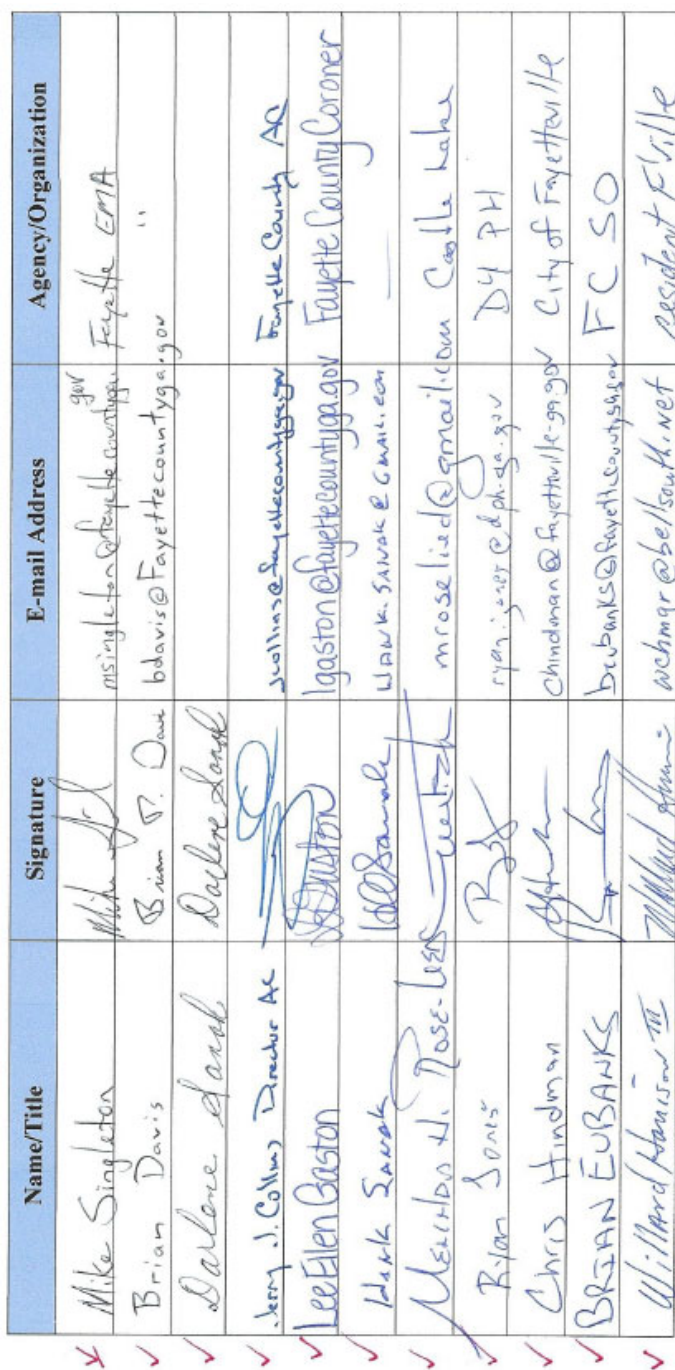 Name/Title Signature E-mail Address Agency/Organization
Mike Singleton msingleton@fayettecountyga.gov Fayette EMA
Brian Davis Brian P. Davis bdavis@fayettecountyga.gov "
Darlene Sanak Darlene Sanak
Jerry J. Collins Director AC jcollins@fayettecountyga.gov Fayette County AC
LeeEllen Gaston LGaston lgaston@fayettecountyga.gov Fayette County Coroner
Hank Sanak HSanak HANK.SANAK@GMAIL.COM —
H. Rose-Lied mroselied@gmail.com Castle Lake
Ryan Jones ryan.jones@dph.ga.gov D4 PH
Chris Hindman chindman@fayetteville-ga.gov City of Fayetteville
BRIAN EUBANKS beubanks@fayettecountyga.gov FCSO
Willard Harrison III wchmgr@bellsouth.net resident F'ville